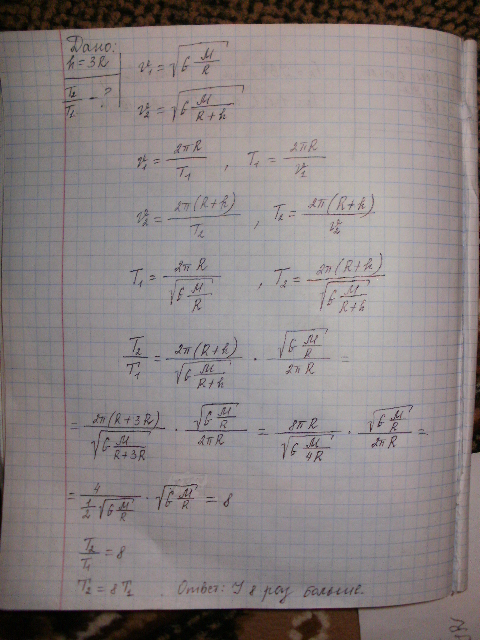 Дано:
h = 3R
T₂/T₁ - ?
v₁ = √(G M/R)
v₂ = √(G M/(R+h))
v₁ = 2πR/T₁ , T₁ = 2πR/v₁
v₂ = 2π(R+h)/T₂ , T₂ = 2π(R+h)/v₂
T₁ = 2πR/√(G M/R) , T₂ = 2π(R+h)/√(G M/(R+h))
T₂/T₁ = 2π(R+h)/√(G M/(R+h)) · √(G M/R)/2πR =
= 2π(R+3R)/√(G M/(R+3R)) · √(G M/R)/2πR = 8πR/√(G M/4R) · √(G M/R)/2πR =
= 4/(1/2 √(G M/R)) · √(G M/R) = 8
T₂/T₁ = 8
T₂ = 8T₂ . Ответ: У 8 раз больше.